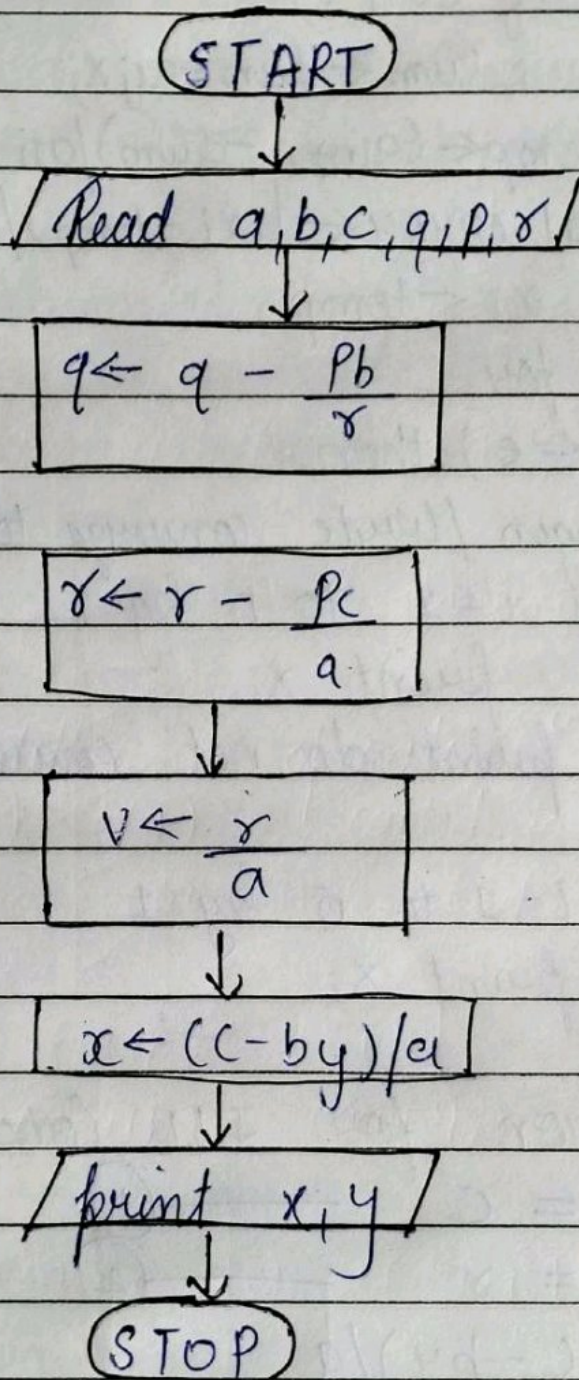 START
Read a, b, c, q, p, r
q ← q - Pb/r
r ← r - Pc/a
v ← r/a
x ← (c - by)/a
print x, y
STOP